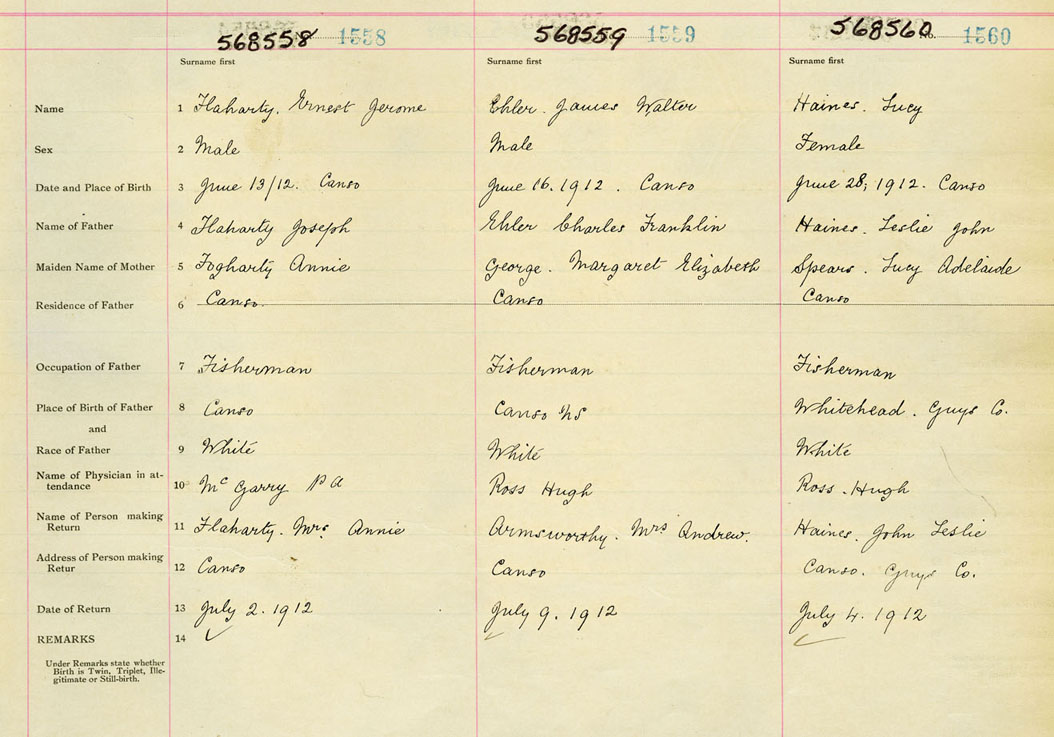 568558 1558 568559 1559 568560 No. 1560
Surname first Surname first Surname first
Name 1 Flaharty. Ernest Jerome Ehler. James Walter Haines. Lucy
Sex 2 Male Male Female
Date and Place of Birth 3 June 13/12. Canso June 16. 1912. Canso June 28, 1912. Canso
Name of Father 4 Flaharty Joseph Ehler Charles Franklin Haines. Leslie John
Maiden Name of Mother 5 Fogharty Annie George. Margaret Elizabeth Spears. Lucy Adelaide
Residence of Father 6 Canso. Canso Canso
Occupation of Father 7 Fisherman Fisherman Fisherman
Place of Birth of Father 8 Canso Canso NS Whitehead. Guys Co.
and
Race of Father 9 White White White
Name of Physician in at-
tendance 10 McGarry P A Ross Hugh Ross. Hugh
Name of Person making
Return 11 Flaharty. Mrs. Annie Armsworthy. Mrs Andrew. Haines. John Leslie
Address of Person making
Retur 12 Canso Canso Canso. Guys Co.
Date of Return 13 July 2. 1912 July 9. 1912 July 4. 1912
REMARKS 14
Under Remarks state whether
Birth is Twin, Triplet, Ille-
gitimate or Still-birth.